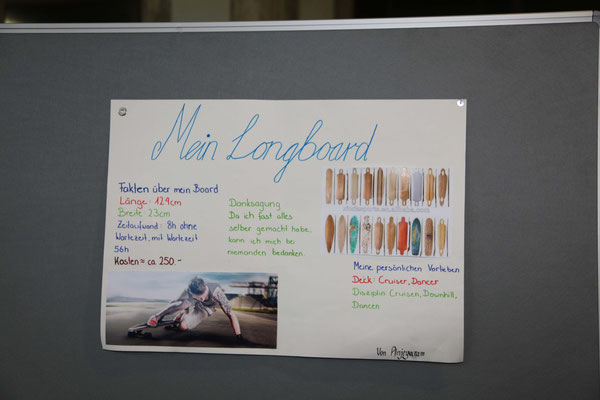 Mein Longboard
Fakten über mein Board
Länge: 129cm
Breite: 23cm
Zeitaufwand: 8h ohne
Wartezeit, mit Wartezeit
56h
Kosten = ca. 250.-
Danksagung
Da ich fast alles
selber gemacht habe,
kann ich mich bei
niemanden bedanken.
Meine persönlichen Vorlieben
Deck: Cruiser, Dancer
Disziplin: Cruisen, Downhill,
Dancen
Von